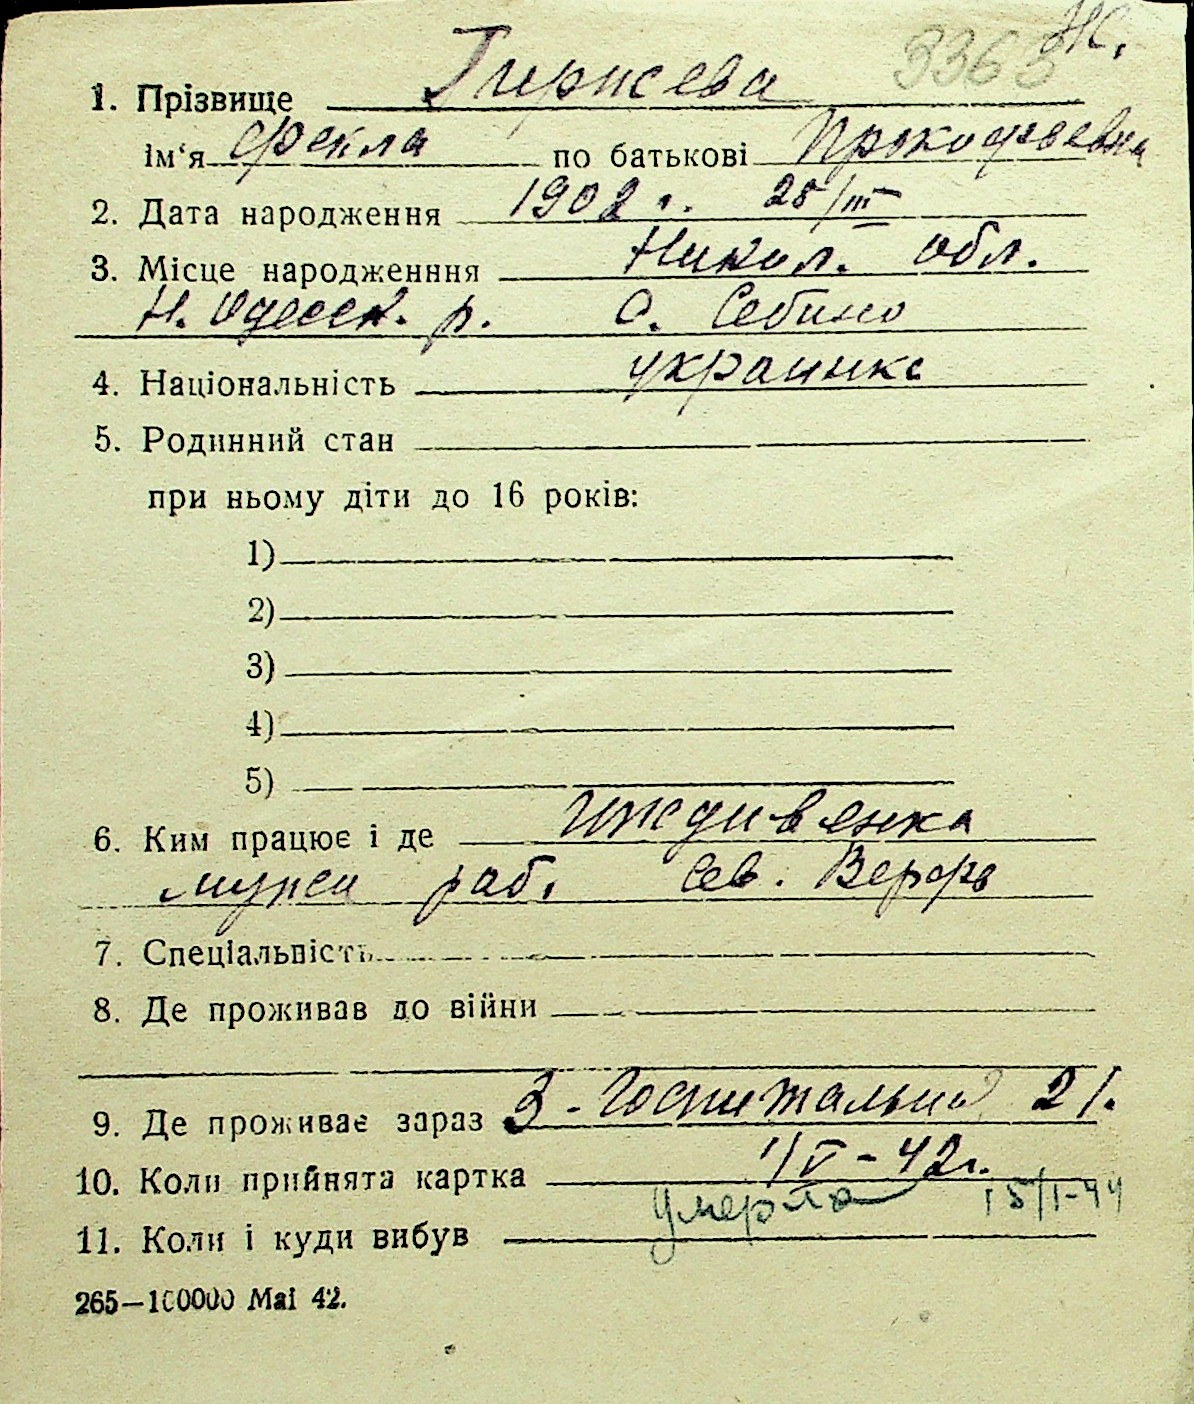 3363 Ж.
1. Прізвище
ім‘я Фекла по батькові Прокофьевна
2. Дата народження 1902 г. 28/III
3. Місце народженння Никол. обл.
Н. Одесск. р. с. Себино
4. Національність украинка
5. Родинний стан
при ньому діти до 16 років:
1)
2)
3)
4)
5)
6. Ким працює і де Иждивенка
мужа раб. Сев. Верфь
7. Спеціальність
8. Де проживав до війни
9. Де проживає зараз 3-Госпитальная 21.
10. Коли прийнята картка 1/V-42г.
умерла 15/I-44
11. Коли і куди вибув
265—100000 Маі 42.